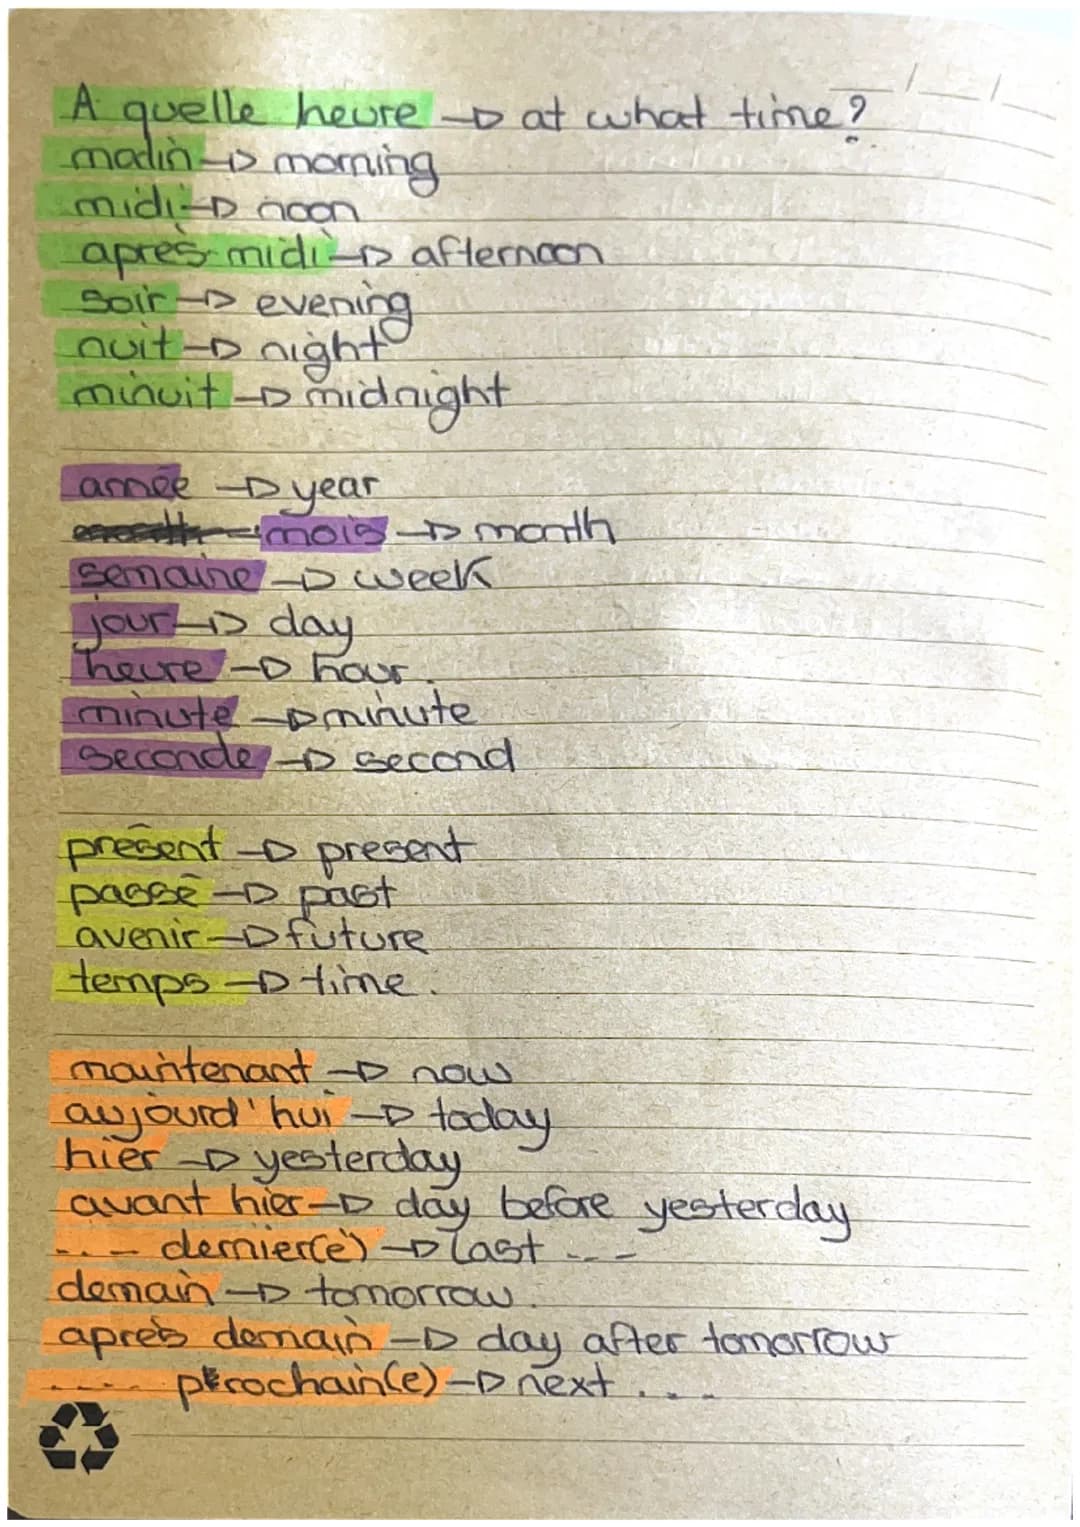 A quelle heure → at what time?
matin → morning
midi → noon
après midi → afternoon
soir → evening
nuit → night
minuit → midnight
année → year
mois → month
semaine → week
jour → day
heure → hour.
minute → minute
seconde → second
présent → present
passé → past
avenir → future
temps → time.
maintenant → now
aujourd'hui → today
hier → yesterday
avant hier → day before yesterday
---- dernier(e) → last ---
demain → tomorrow.
après demain → day after tomorrow
---- prochain(e) → next ...